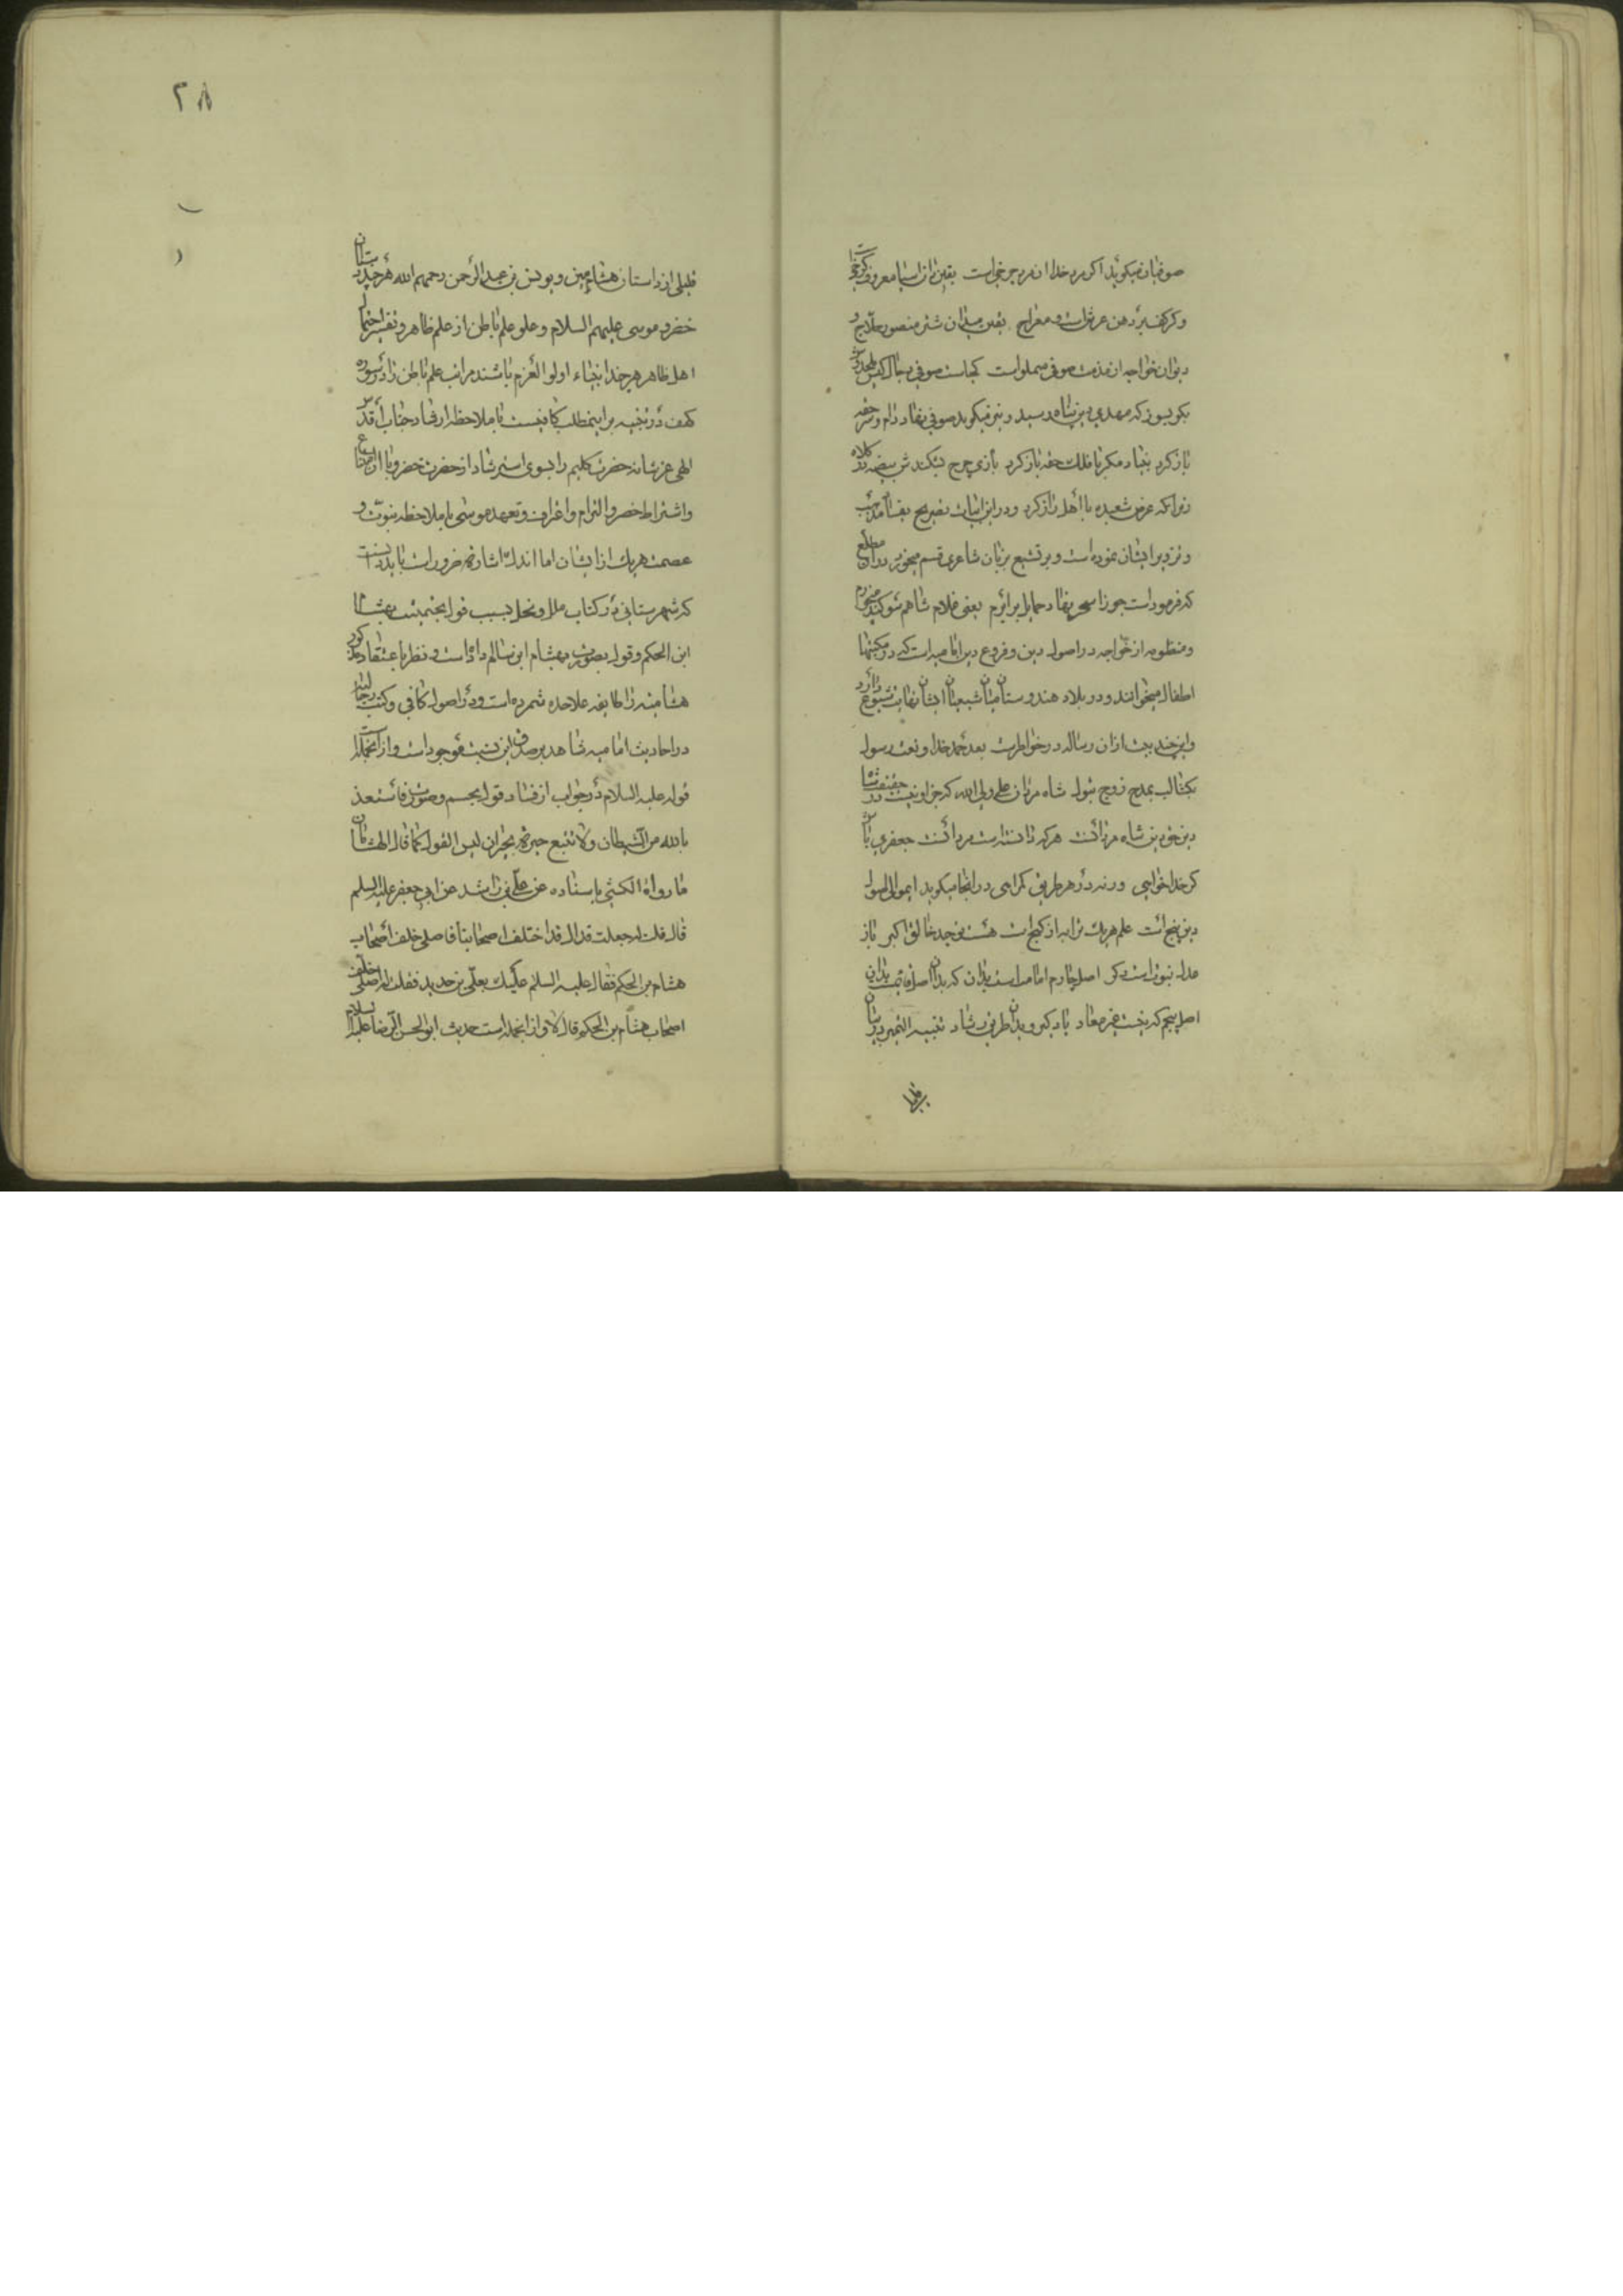 صوفیان میکوید اکر مرد خدا ان مرد چرخی است یقین دان اسیا معروف کرخی است
وکر کف بر دهن عرش است و معراج یقین میدان شتر منصور حلاج و
دیوان خواجه از مذمت صوفی مملو است کجاست صوفی دجال کیش ملحد شکل
بکو بسوز که مهدی دین پناه رسید و نیز میکوید صوفی نهاد دام و سر حقه
باز کرد بنیاد مکر با فلک حقه باز کرد بازی چرخ بشکندش بیضه در کلاه
زیرا که عرض شعبده با اهل راز کرد و در این ابیات تصریح
و تزویر ایشان نموده است و بر تشیع بزبان شاعری قسم میخورد در ان مطلع
که فرموداست جوزا سحر نهاد حمایل برابرم یعنی غلام شاهم و سوکند میخورم
و منظومه از خواجه در اصول دین و فروع دین امامیه است که در مکتبها
اطفال میخوانند و در بلاد هندوستان میان شیعیان ایشان نهایت شیوع دارد
و این چند بیت از ان رساله در خواطر است بعد حمد خدا و نعت رسول
بکشا لب بمدح زوج بتول شاه مردان علی ولی الله که جز او نیست در حقیقت شاه
دین حق دین شاه مردانست هر که دانسته است مرد انست جعفری باش
کر خدا خواهی ورنه در هر طریق کمراهی در انجا میکوید ایموالی اصول
دین پنج است علم هریک ترا به از کنج است هست توحید خالق اکبر باز
عدل نبوت است دکر اصل چارم امامت است بدان که بدان اصل قایمست بدان
اصل پنجم که نیست غیر معاد یاد کیر و بدان طریق رشاد تنبیه
برقایا
۲۸
قلیلی از داستان هشامین و یونس بن عبد الرحمن رحمهم الله هر چند داستان
خضر و موسی علیهم السلام و علو علم باطن از علم ظاهر و تفسیر احتمال
اهل ظاهر هر چند انبیاء اولو العزم باشند مراتب علم باطن را در سوره
کهف در تنبیه بر اینمطلب کافیست با ملاحظه ارشاد جناب اقدس
الهی عز شانه حضرت کلیم را بسوی استرشاد از حضرت خضر و
و اشتراط خضر و التزام و اعتراف و تعهد موسی با ملاحظه نبوت و
عصمت هریک از ایشان اما اندک اشارتی ضرور است باید دانست
که شهرستانی در کتاب ملل و نحل بسبب قول بجسمیت بهشام
ابن الحکم و قول بصورت بهشام ابن سالم داده است و نظر باعتقاد مذکور
هشامیه را طایفه علاحده شمرده است و در اصول کافی و کتب رجالیه
در احادیث امامیه شاهد بر صدق این نسبت موجود است و از انجمله است
قوله علیه السلام در جواب از فساد قول بجسم و صورت فاستعذ
بالله من الشیطان ولا تتبع حیرة حیران لیس القول کما قال الهشامان
ما رواه الکشی باسناده عن علی بن راشد عن ابی جعفر علیه السلم
قال قلت له جعلت فداک قد اختلف اصحابنا فاصلی خلف اصحاب
هشام بن الحکم فقال علیه السلم علیک بعلی بن حدید فقلت له اصلی خلف
اصحاب هشام بن الحکم قال لا و از انجمله است حدیث ابو الحسن الرضا علیه السلام